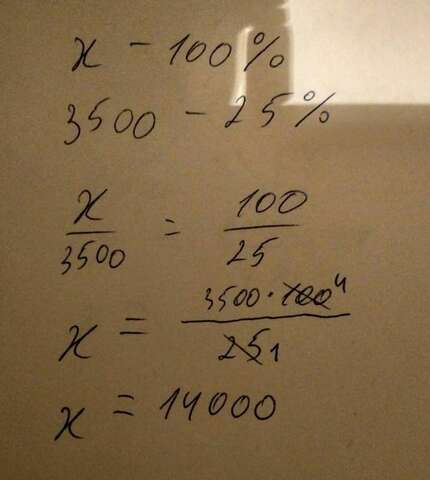 x - 100%
3500 - 25%
x/3500 = 100/25
x = 3500·100 4/25 1
x = 14000